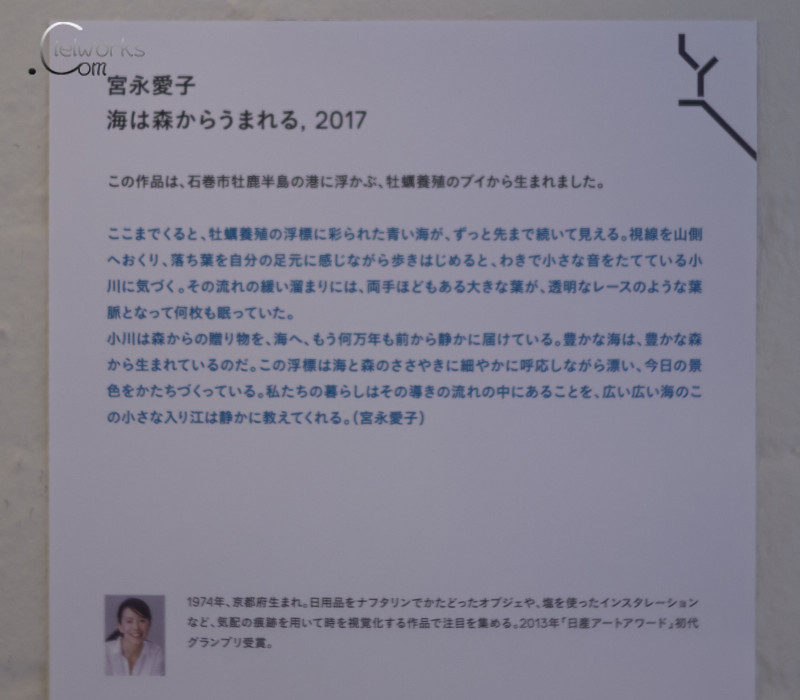 Cielworks
.Com
宮永愛子
海は森からうまれる, 2017
この作品は、石巻市牡鹿半島の港に浮かぶ、牡蠣養殖のブイから生まれました。
ここまでくると、牡蠣養殖の浮標に彩られた青い海が、ずっと先まで続いて見える。視線を山側
へおくり、落ち葉を自分の足元に感じながら歩きはじめると、わきで小さな音をたてている小
川に気づく。その流れの緩い溜まりには、両手ほどもある大きな葉が、透明なレースのような葉
脈となって何枚も眠っていた。
小川は森からの贈り物を、海へ、もう何万年も前から静かに届けている。豊かな海は、豊かな森
から生まれているのだ。この浮標は海と森のささやきに細やかに呼応しながら漂い、今日の景
色をかたちづくっている。私たちの暮らしはその導きの流れの中にあることを、広い広い海のこ
の小さな入り江は静かに教えてくれる。(宮永愛子)
1974年、京都府生まれ。日用品をナフタリンでかたどったオブジェや、塩を使ったインスタレーション
など、気配の痕跡を用いて時を視覚化する作品で注目を集める。2013年「日産アートアワード」初代
グランプリ受賞。